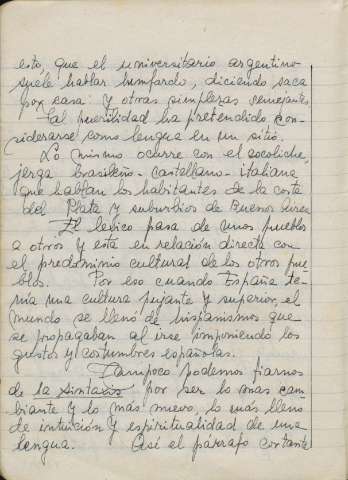 esto que el universitario argentino
suele hablar lunfardo, diciendo saca
por casa: y otras simplezas semejantes.
Tal puerilidad ha pretendido con-
siderarse como lengua en un sitio.
Lo mismo ocurre con el cocoliche,
jerga brasileño-castellano-italiana
que hablan los habitantes de la costa
del Plata y suburbios de Buenos Aires
El lexico pasa de unos pueblos
a otros y esta en relación directa con
el predominio cultural de los otros pue
blos. Por eso cuando España te-
nía una cultura pujante y superior, el
mundo se llenó de hispanismos que
se propagaban al irse imponiendo los
gustos y costumbres españolas.
Tampoco podemos fiarnos
de la sintaxis por ser lo mas cam
biante y lo más nuevo, lo más lleno
de intuición y espiritualidad de una
lengua. Así el párrafo cortante